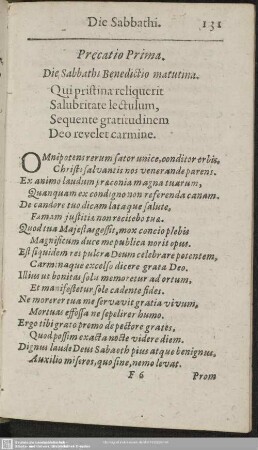 Die Sabbathi. 131
Precatio Prima.
Die Sabbathi Benedictio matutina.
Qui pristina reliquerit
Salubritate lectulum,
Sequente gratitudinem
Deo revelet carmine.
OMnipotens rerum sator unice, conditor orbis,
Christi salvantis nos venerande parens.
Ex animo laudum præconia magna tuarum,
Quanquam ex condigno non referenda canam.
De candore tuo dicam lataque salute,
Famam justitiæ non recitebo tuæ.
Quod tua Majestas gessit, mox concio plebis
Magnificum duce me publica norit opus.
Est siquidem res pulcra Deum celebrare potentem,
Carminaque excelso dicere grata Deo.
Illius ut bonitas solis memoretur ad ortum,
Et manifestetur sole cadente fides.
Ne morerer tua me servavit gratia vivum,
Mortuus effossa ne sepelirer humo.
Ergo tibi grato promo de pectore grates,
Quod possim exacta nocte videre diem.
Dignus laude Deus Sabaoth pius atque benignus,
Auxilio miseros, quo sine, nemo levat.
F 6 Prom